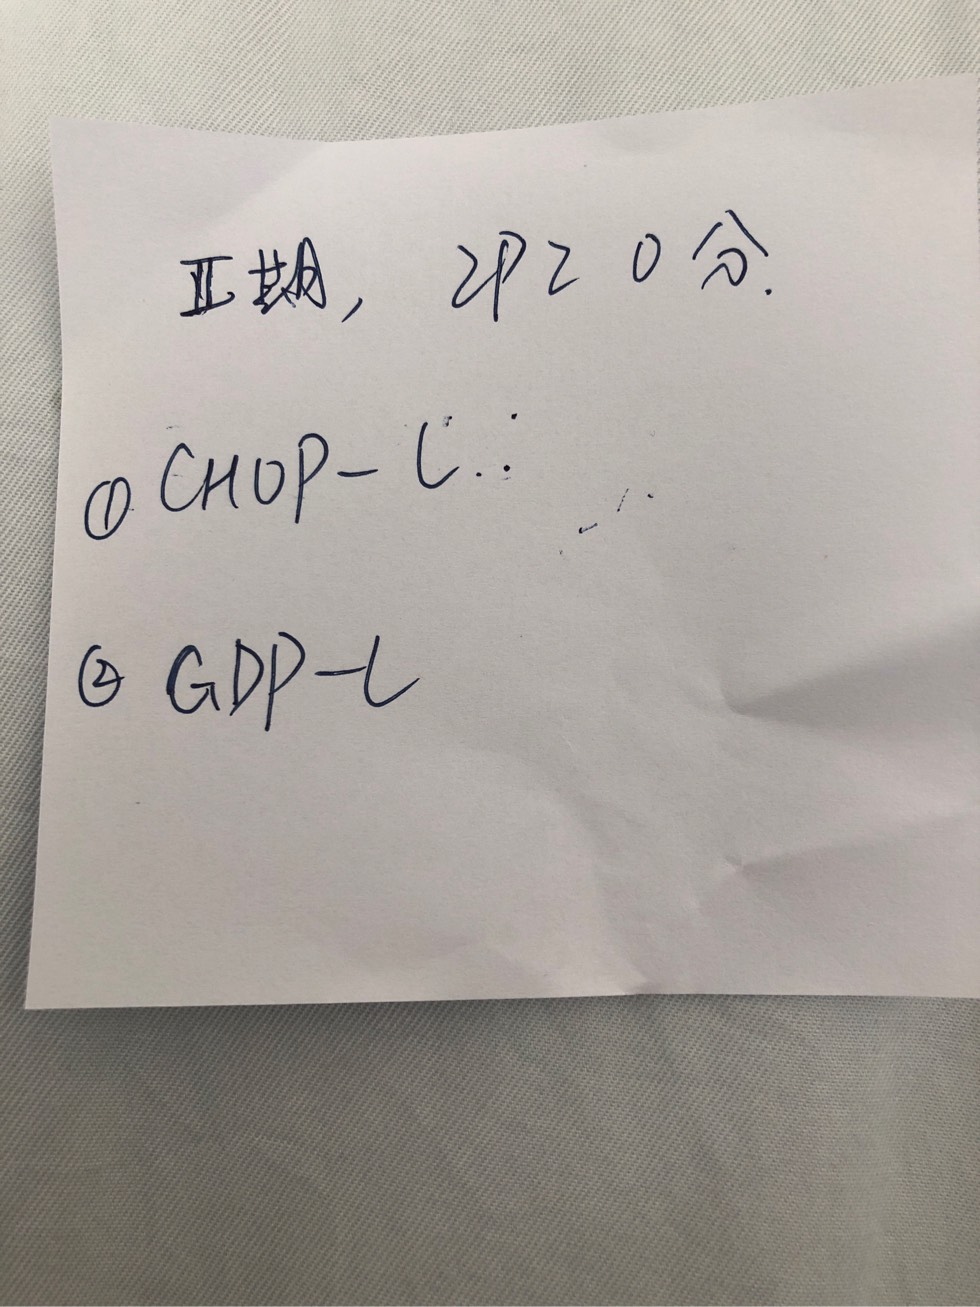 Ⅱ期, IPI 0分.
① CHOP-L
② GDP-L